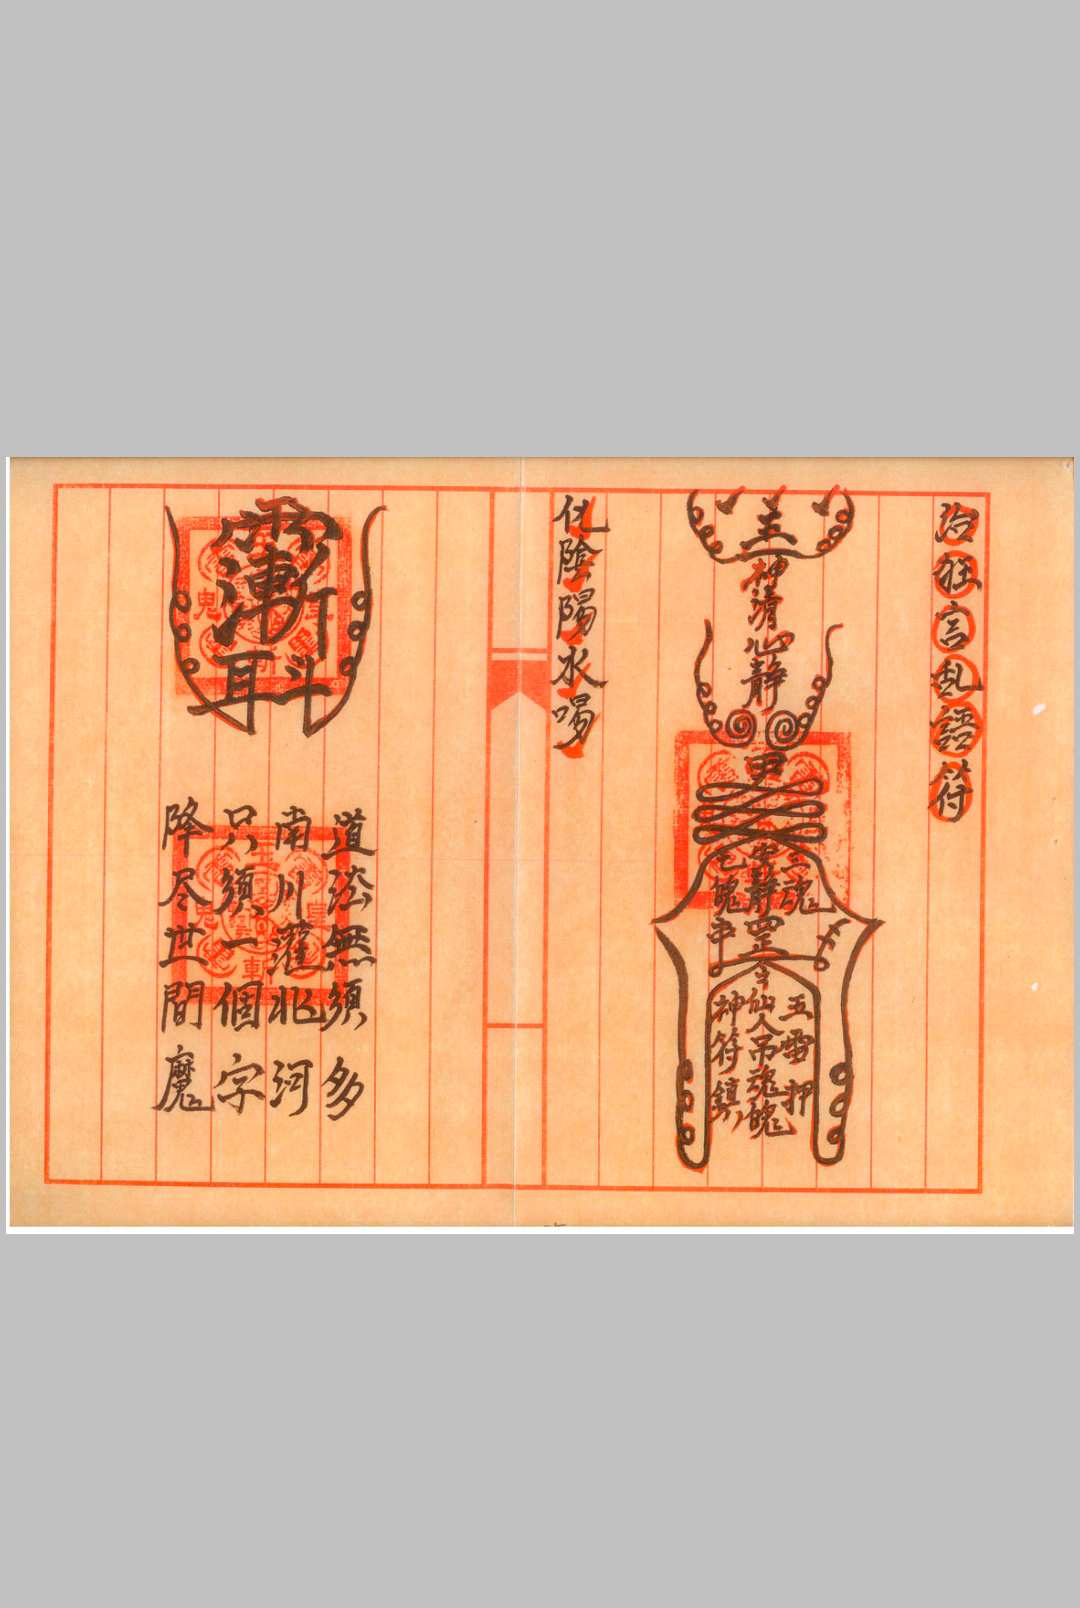 治狂言乱語符
主
神清心静
尹
三魂
安静
七魄
罡
令
五雷押
仙人吊魂魄
神符鎮
化陰陽水喝
道法無須多
南川灌北河
只須一個字
降尽世間魔